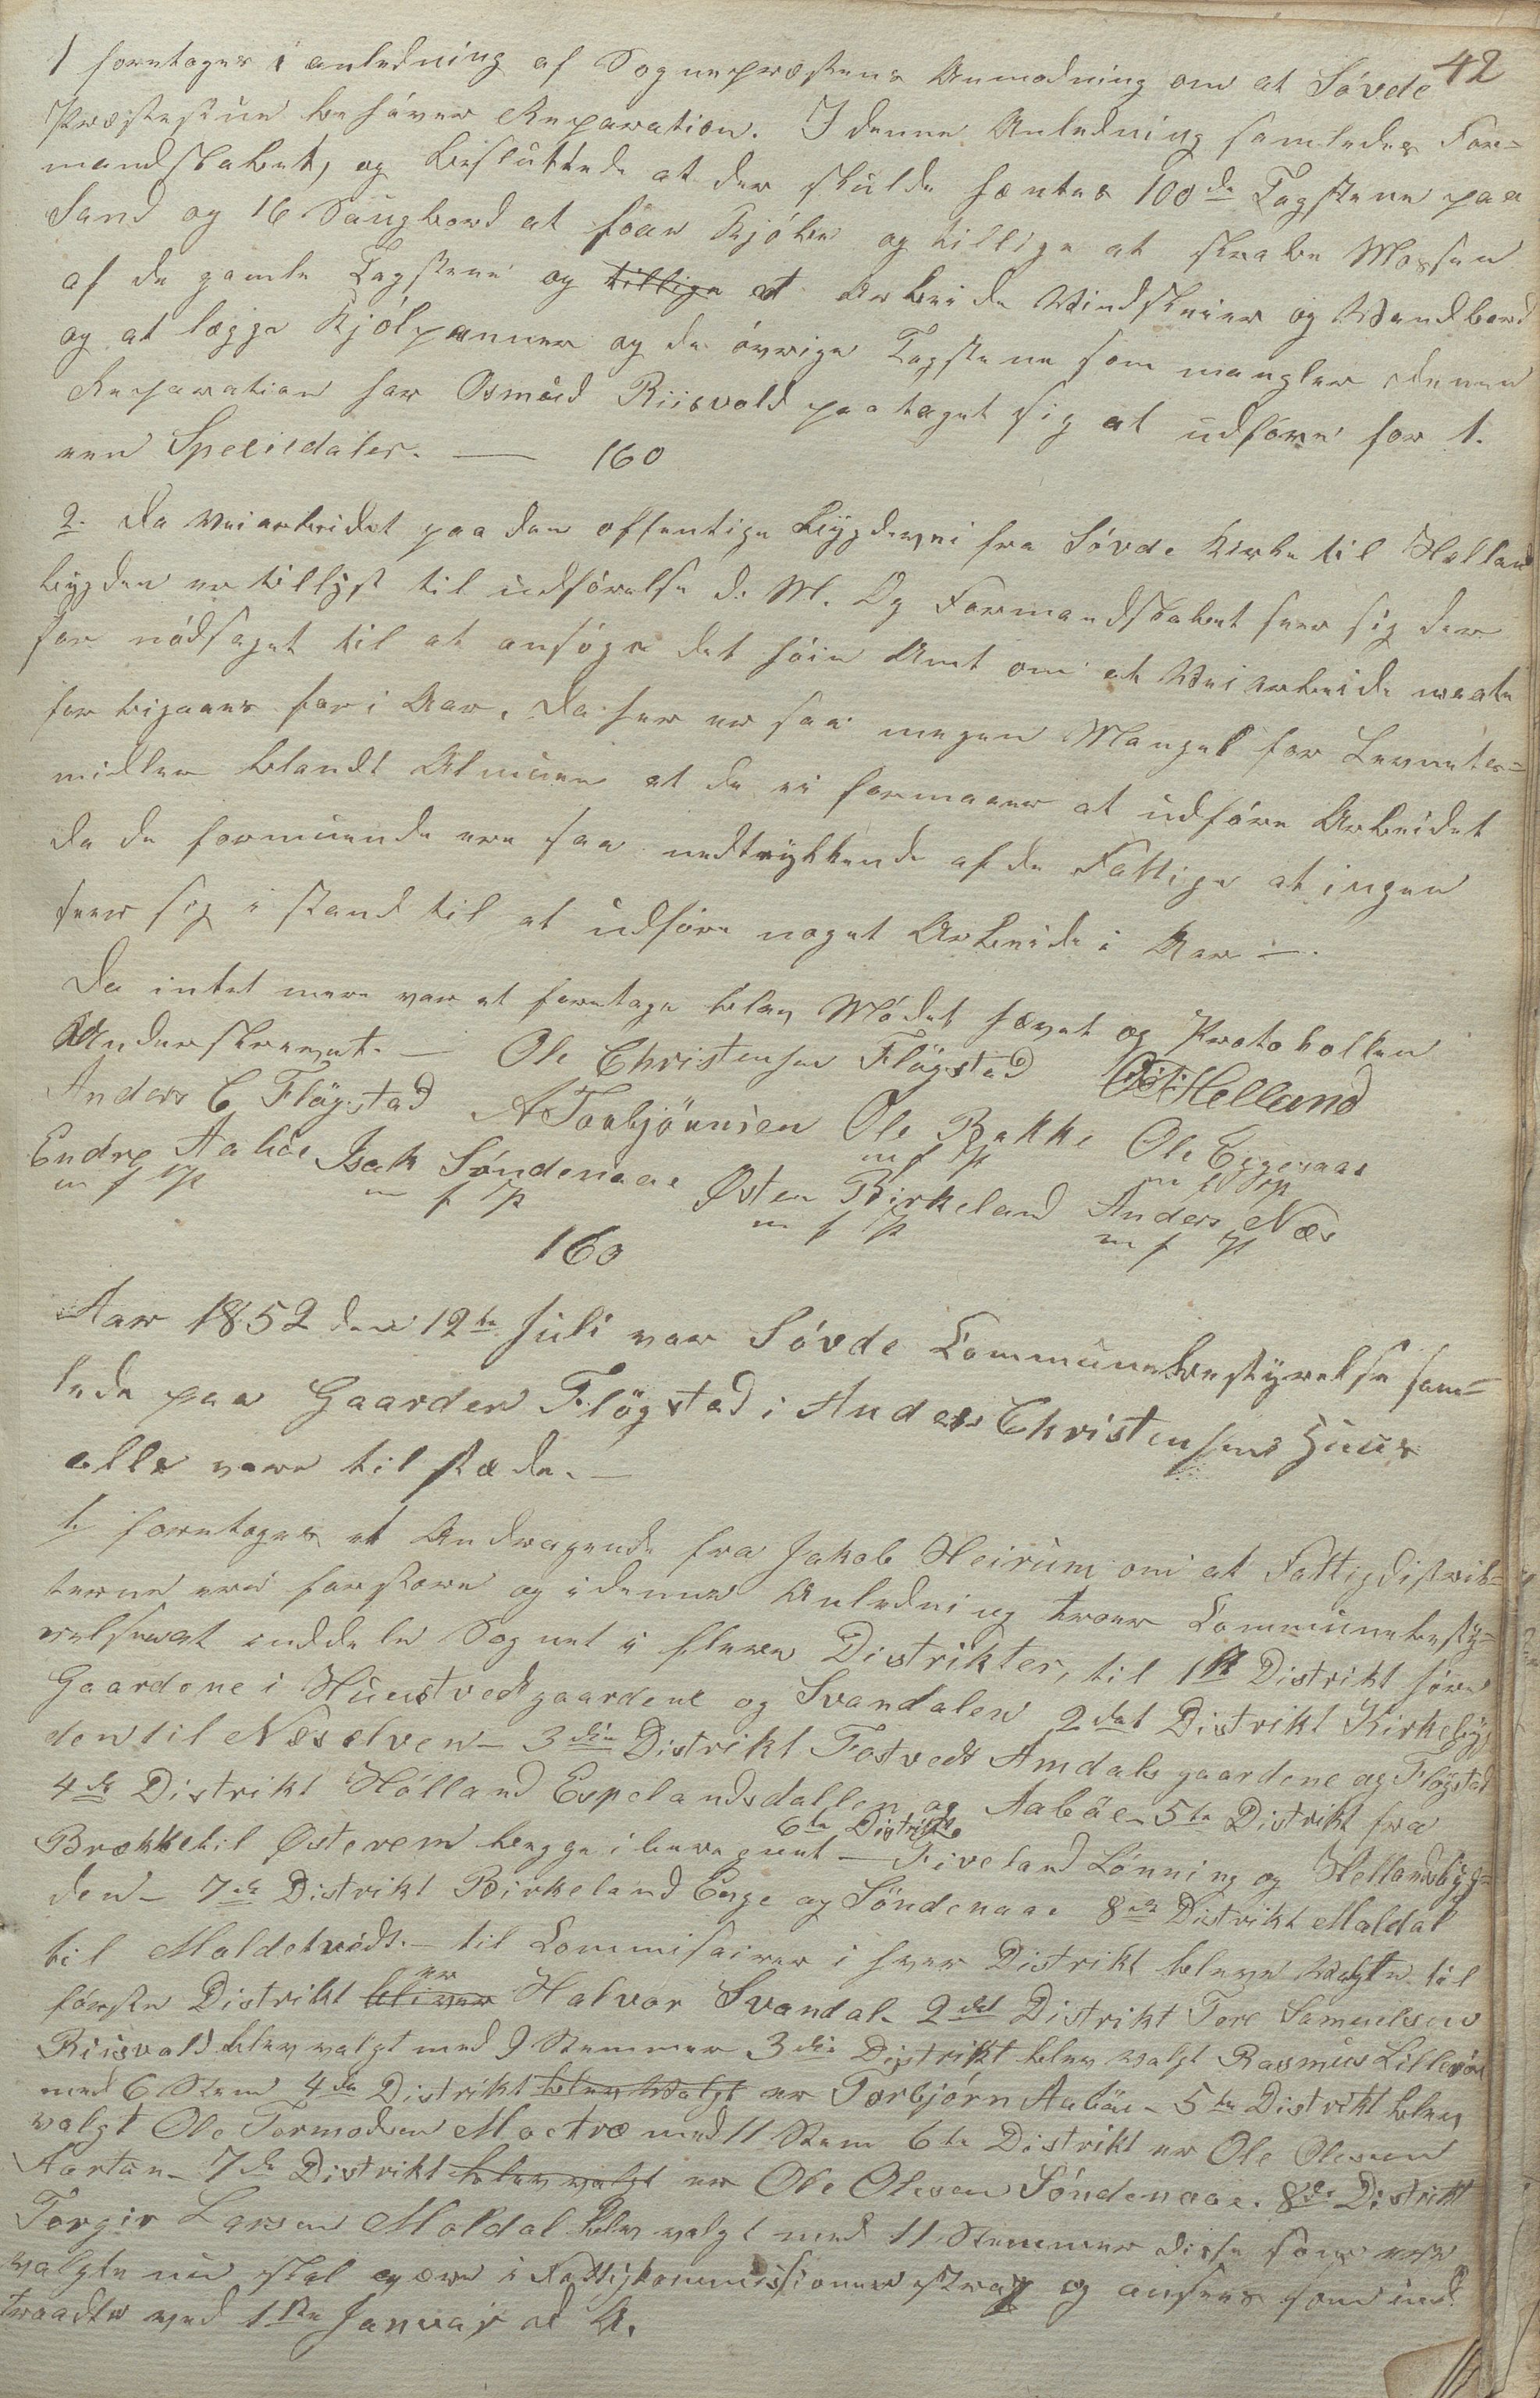 42
1 foretoges i anledning af Sognepræstens Anmodning om at Sövde
Præstestue behöver Reparation. I denne Anledning samledes For-
mandskabet, og besluttede at der skulde hentes 100de Tagstene paa
Sand og 16 Saugbord at faae kjöbe og tillige at skrabe Mossen
af de gamle Tagstene og tillige at Arbeide Vindskeier og Vandbord
og at lægge Kjölpanner og de övrige Tagstene som mangler denne
Reparation har Osmund Riisvold paataget sig at udföre for 1.
een Speciedaler. — 160
2. Da Veiarbeidet paa den offentlige Bÿgdevei fra Sövde Kirke til Hælland
bÿgden er tillÿst til udförelse d. M. Og Formandskabet seer sig der
for nödsaget til at ansöge det höie Amt om at Veiarbeide maate
forbigaaes for i Aar, da her er saa megen Mangel for Levnets-
midler blandt Almuen at de ei formaaer at udföre Arbeidet
da de formuende ere saa nedtrÿkkende af de Fattige at ingen
seer sig i stand til at udföre noget Arbeide i Aar —.
Da intet mere var at foretage blev Mödet hævet og Protokollen
Underskrevet. — Ole Christensen Flögstad O. T. Helland
Anders C Flögstad A Torbjörnsen Ole Bakke Ole Eggenaas
m f P m f P
Endre Aabøe Isak Söndenaae Østen Birkeland Anders Næs
m f P m f P m f P m f P
160
Aar 1852 den 12te Juli var Sövde Communebestÿrelse sam-
lede paa Gaarden Flögstad i Anders Christensens Huus
alle vare til stæde. —
1. foretoges et Andragende fra Jakob Heirum om at Fattigdistrik-
terne ere for store og i denne Anledning troer Communebestÿ-
relsen at inddele Sognet i flere Distrikter, til 1ste Distrikt höre
Gaardene i Huustvedtgaardene og Svandalen 2det Distrikt Kirkebÿg
den til Næselven — 3die Distrikt Tostvedt Amdals gaardene og Flögstad
4de Distrikt Hölland Espelandsdallen og Aabøe — 5te Distrikt fra
Brække til Østerem begge iberegnet — 6te Distrikt Fiveland Lönning og Hellandsbÿg-
den — 7de Distrikt Birkeland Enge og Söndenaae 8de Distrikt Maldal
til Maldetvedt. — til Commisairer i hver Distrikt bleve valgte til
förste Distrikt bliver er Halvor Svandal. 2det Distrikt Tore Samuelsen
Riisvold blev valgt med 9 Stemmer 3die Distrikt blev valgt Rasmus
med 6 Stem 4de Distrikt blev valgt er Torbjörn Aabøe — 5te Distrikt blev
valgt Ole Tormodsen Moetræ med 11 Stem 6te Distrikt er Ole Olesen
Hartun — 7de Distrikt blev valgt er Ole Olesen Söndenaae. 8de Distrikt
Torgir Larsen Maldal blev valgt med 11 Stemmer disse som ere
valgte nu skal være i Fattigkommissionen strax og ansees som ind
traadte ved 1ste Januar d. A.